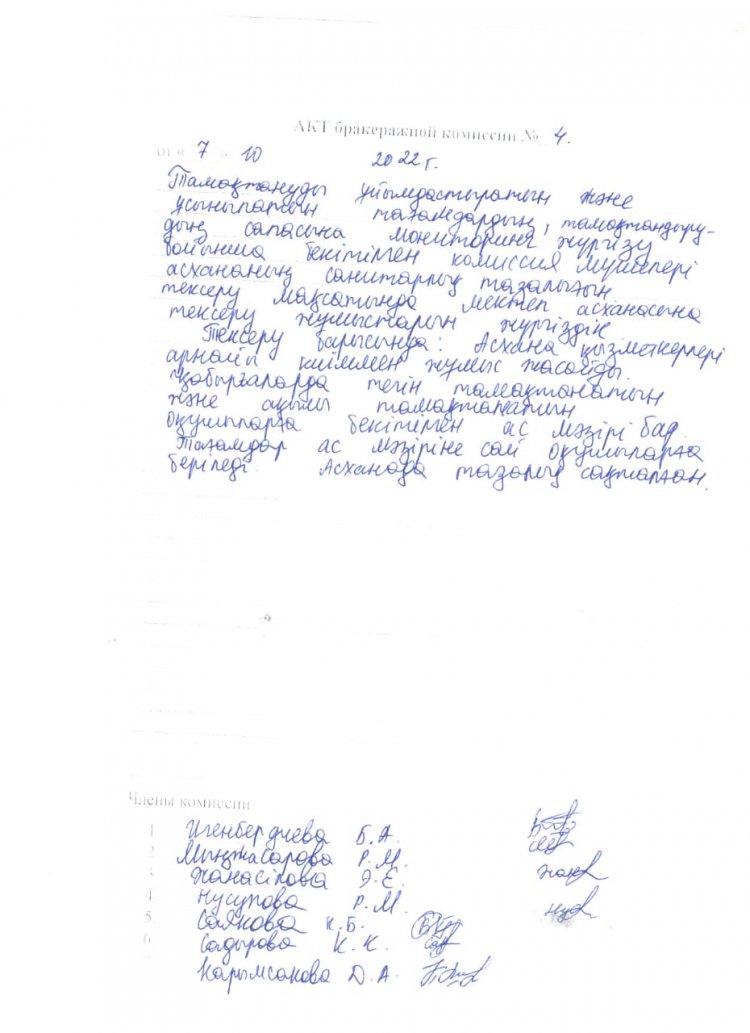 АКТ бракеражной комиссии № 4.
от « 7 » 10 2022 г.
Тамақтануды ұйымдастыратын және
ұсынылатын тағамдардың, тамақтандыру-
дың сапасына мониторинг жүргізу
бойынша бекітілген комиссия мүшелері
асхананың санитарлық тазалығын
тексеру мақсатында мектеп асханасына
тексеру жұмыстарын жүргіздік
Тексеру барысында: Асхана қызметкерлері
арнайы киіммен жұмыс жасайды.
Қабырғаларда тегін тамақтанатын
және ақылы тамақтанатын
оқушыларға бекітілген ас мәзірі бар.
Тағамдар ас мәзіріне сай оқушыларға
беріледі. Асханада тазалық сақталған.
Члены комиссии
1 Игенбердиева Б.А.
2 Мыңжасарова Р.М.
3 Жанасілова Э.Е.
4 Нусупова Р.М.
5. Саякова К.Б.
6 Садырова К.К.
Карымсакова Д.А.